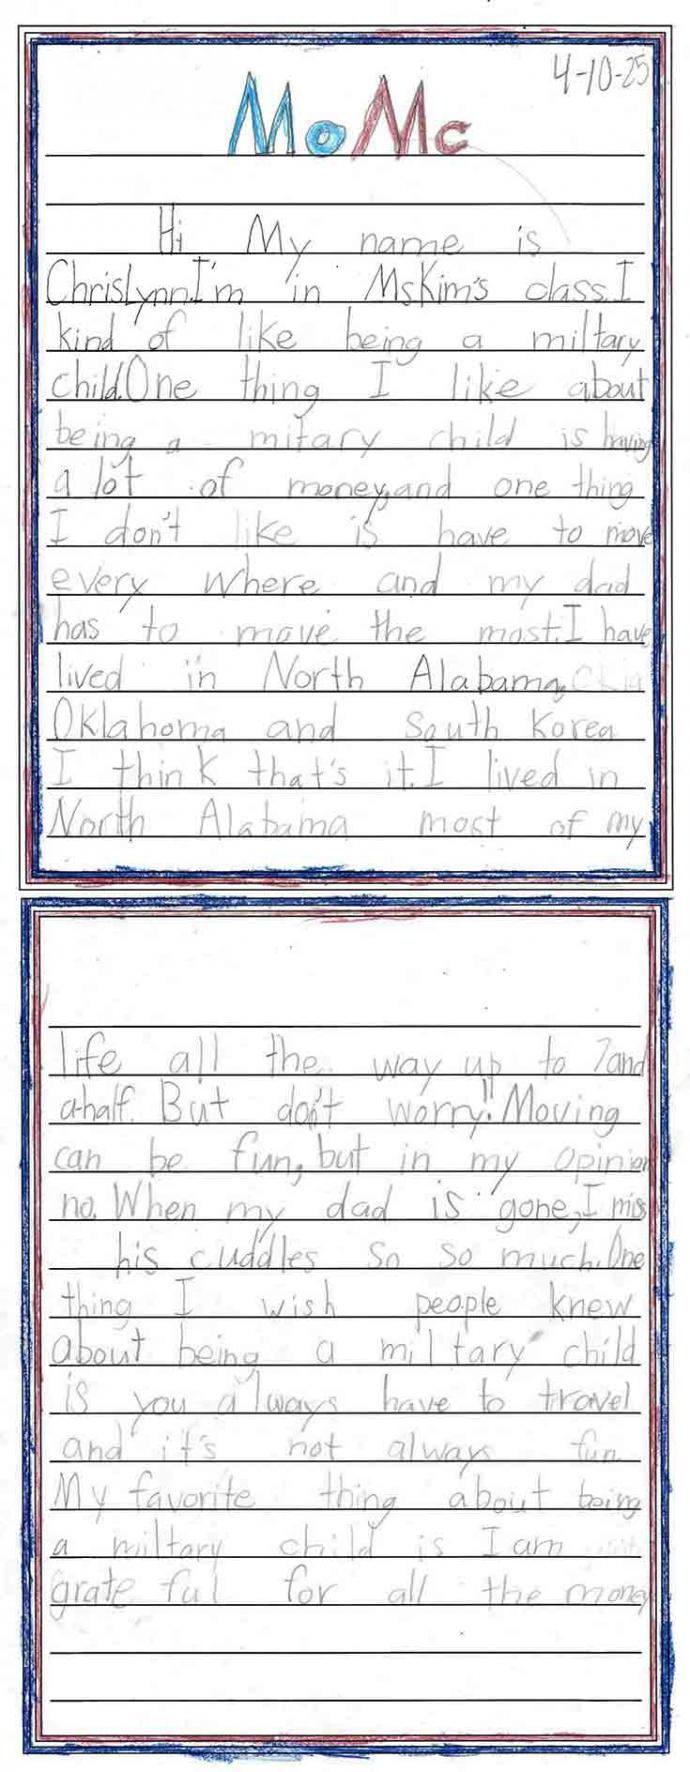 4-10-25
MoMc
Hi My name is
ChrisLynn.I'm in MsKim's class.I
kind of like being a miltary
child.One thing I like about
being a mitary child is having
a lot of money,and one thing
I don't like is have to move
every where and my dad
has to move the most.I have
lived in North Alabama,
Oklahoma and South Korea
I think that's it.I lived in
North Alabama most of my
life all the way up to 7and
a-half. But don't worry!! Moving
can be fun, but in my opinion
no. When my dad is gone,I miss
his cuddles so so much.One
thing I wish people knew
about being a miltary child
is you always have to travel
and it's not always fun.
My favorite thing about being
a miltary child is I am
grate ful for all the money